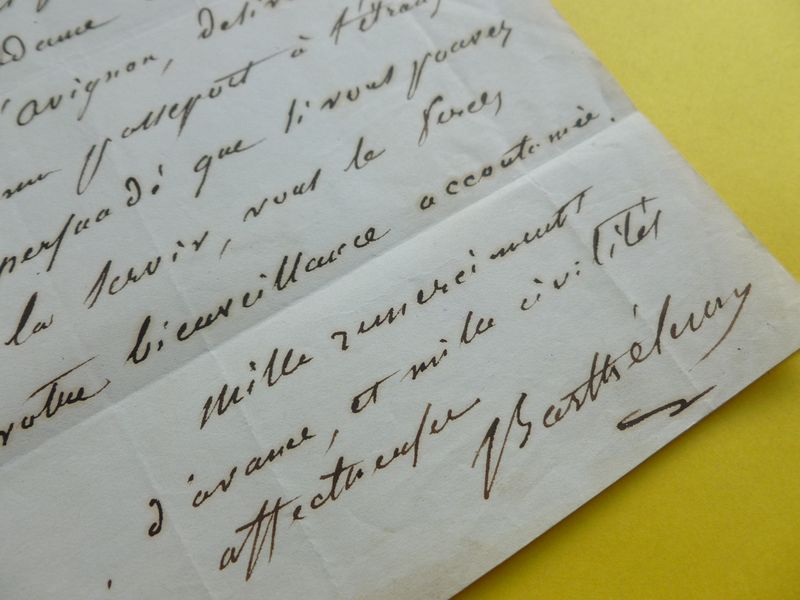 d'avignon, deliv
un passeport à l'étran
persuadé que si vous pouvez
la servir, vous le ferez
votre bienveillance accoutumée.
Mille remerciments
d'avance, et mille civilités
affectueuses
Barthélemy